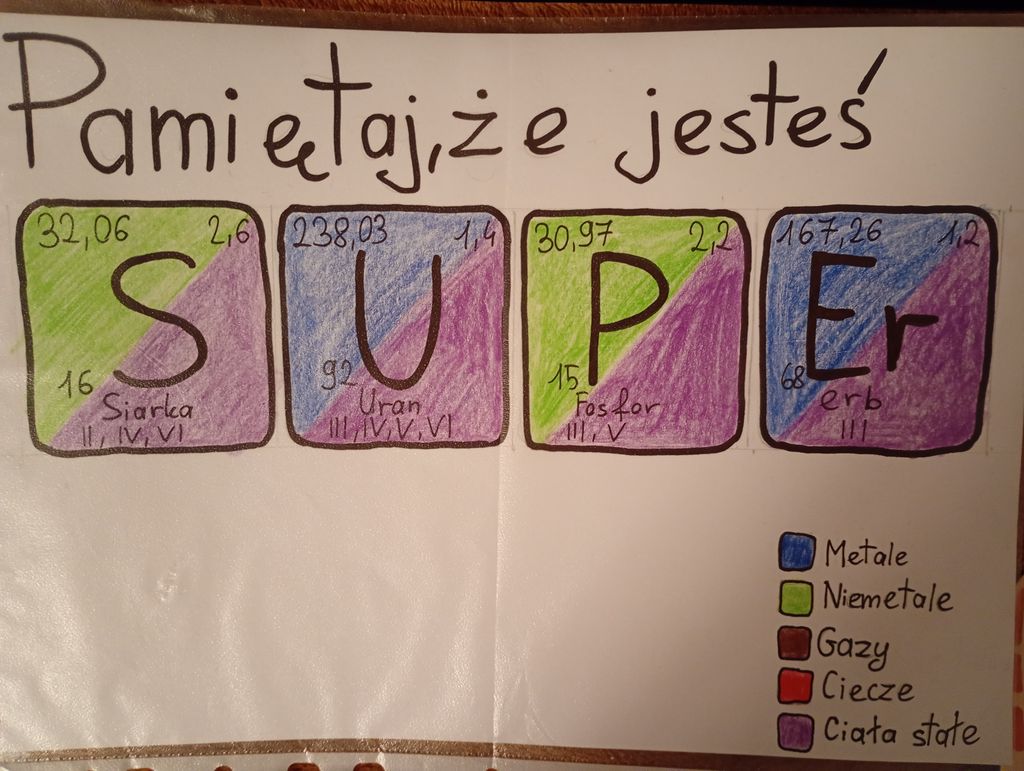 Pamiętaj, że jesteś
32,06 2,6
S
16
Siarka
II, IV, VI
238,03 1,4
U
92
Uran
III, IV, V, VI
30,97 2,2
P
15
Fosfor
III, V
167,26 1,2
Er
68
erb
III
Metale
Niemetale
Gazy
Ciecze
Ciała stałe